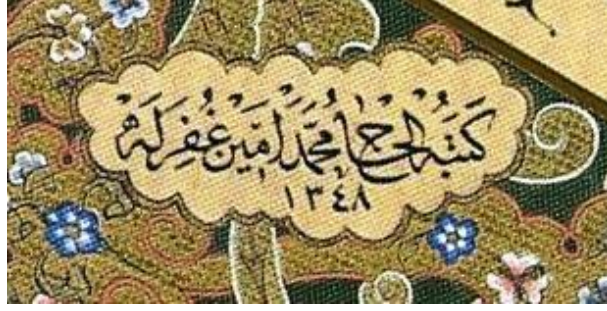 كَتَبَهُ الحاج مُحَمَّد اَمين غُفِرَ لَهُ
١٣٤٨